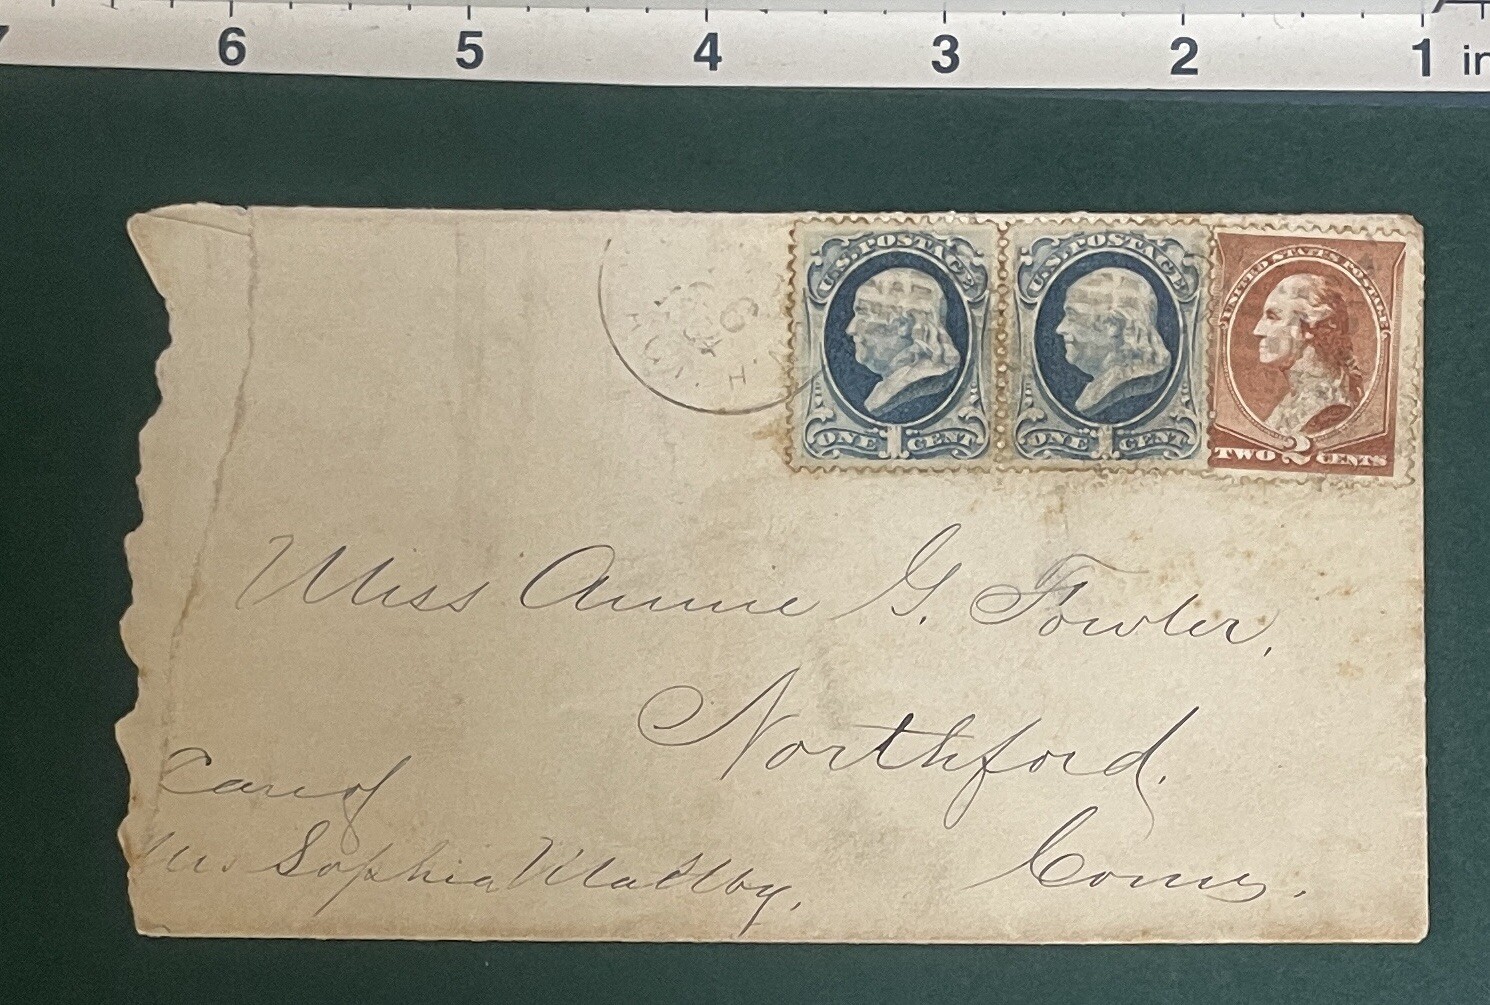 7 6 5 4 3 2 1 in
U.S. POSTAGE
ONE 1 CENT
U.S. POSTAGE
ONE 1 CENT
UNITED STATES POSTAGE
TWO 2 CENTS
6
Miss Annie G. Fowler,
Northford,
Conn,
Care of
Mrs Sophia Maltby,